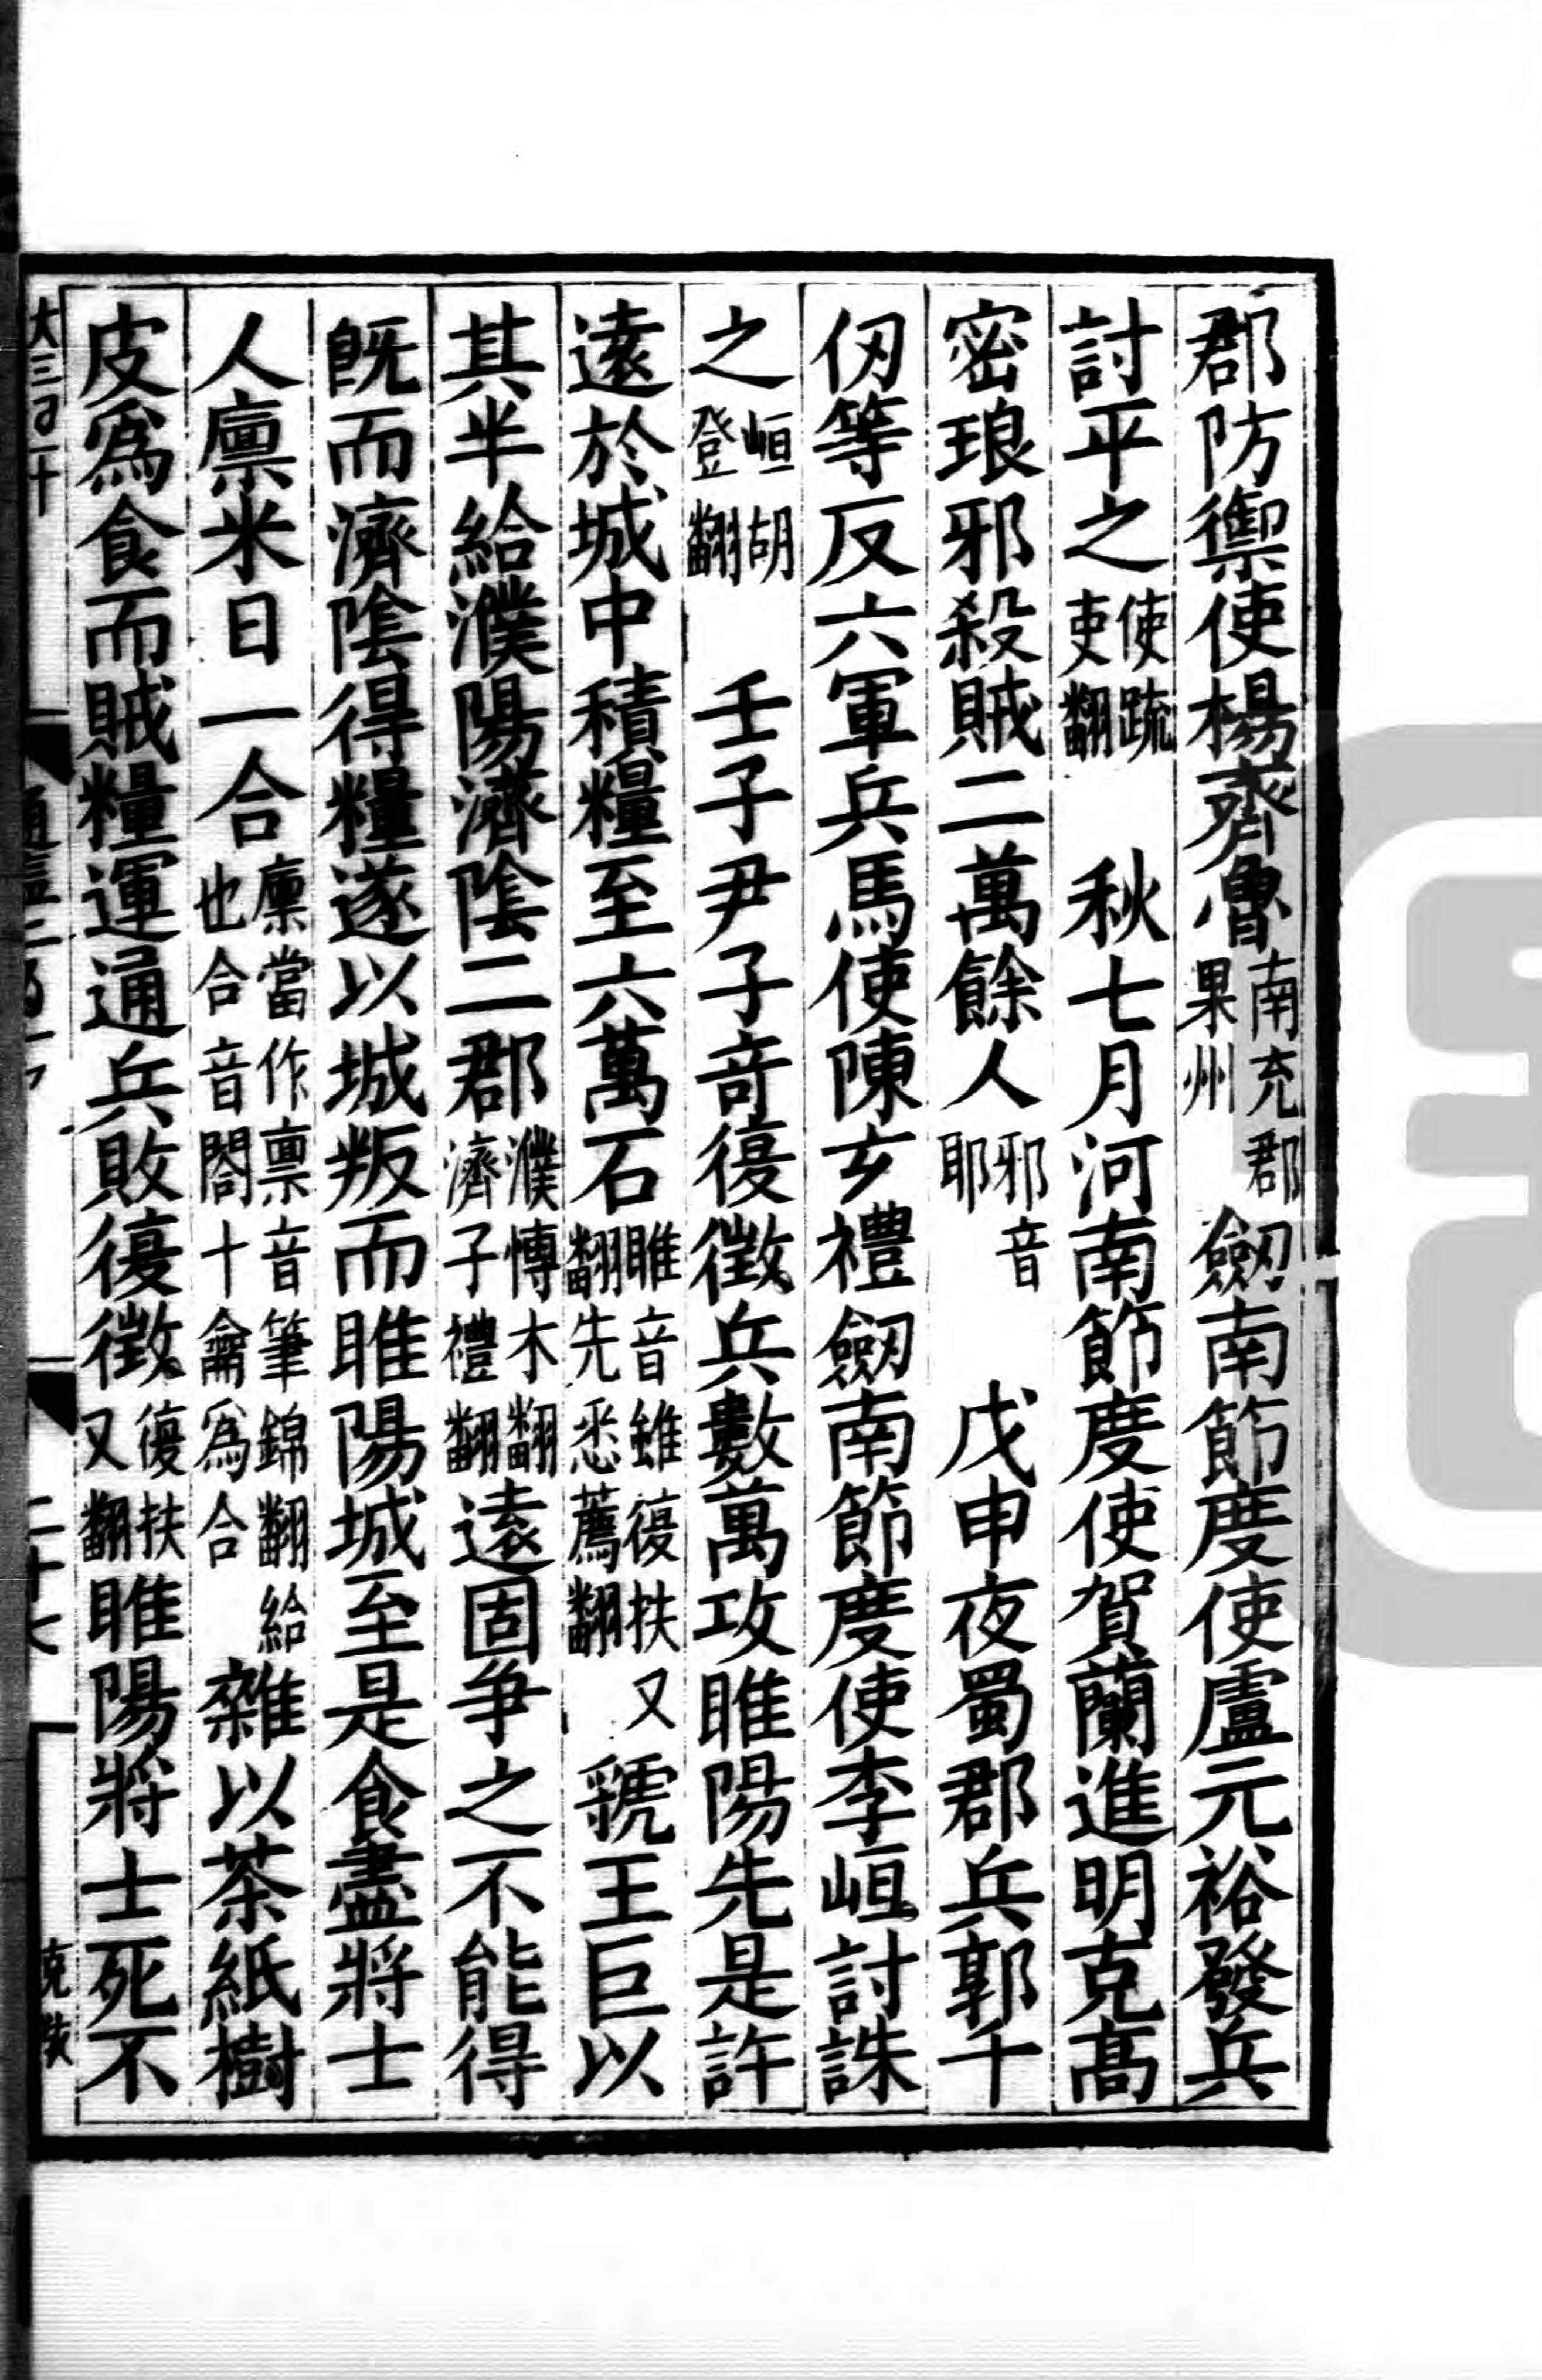 郡防禦使楊齊魯南充郡果州劒南節度使盧元裕發兵
討平之使疏吏翻秋七月河南節度使賀蘭進明克高
密琅邪殺賊二萬餘人邪音耶戊申夜蜀郡兵郭千
仞等反六軍兵馬使陳玄禮劒南節度使李峘討誅
之峘胡登翻壬子尹子竒復徵兵數萬攻睢陽先是許
遠於城中積糧至六萬石睢音雖復扶又翻先悉薦翻虢王巨以
其半給濮陽濟陰二郡濮博木翻濟子禮翻遠固爭之不能得
既而濟陰得糧遂以城叛而睢陽城至是食盡將士
人廩米日一合廩當作稟音筆錦翻給也合音閤十龠爲合雜以茶紙樹
皮爲食而賊糧運通兵敗復徵復扶又翻睢陽將士死不